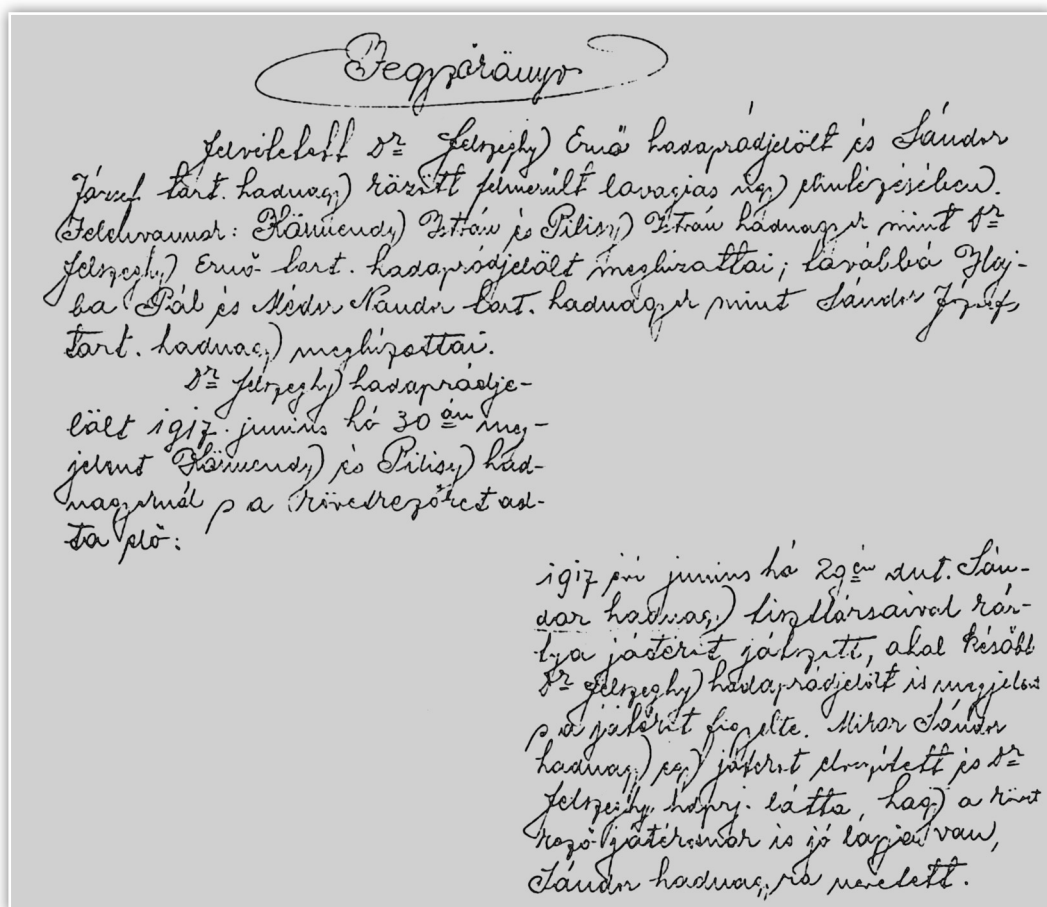 Jegyzőkönyv
felvétetett Dr Felszeghy Ernő hadapródjelölt és Sándor
József tart. hadnagy között felmerült lovagias ügy elintézésében.
Jelenvannak: Körmendy István és Pilisy István hadnagyok mint Dr
Felszeghy Ernő tart. hadapródjelölt megbizottai; továbbá Haj-
ba Pál és Méder Nándor tart. hadnagyok mint Sándor József
tart. hadnagy megbizottai.
Dr Felszeghy hadapródje-
lölt 1917. junius hó 30 án meg-
jelent Körmendy és Pilisy had-
nagyoknál s a következőket ad-
ta elő:
1917 évi junius hó 29 én dut. Sán-
dor hadnagy tiszttársaival kár-
tya játékot játszott, ahol később
Dr Felszeghy hadapródjelölt is megjelent
s a játékot figyelte. Mikor Sándor
hadnagy egy játékot elveszített és Dr
Felszeghy hdprj. látta, hogy a követ
kező játékosnak is jó lapja van,
Sándor hadnagyra nevetett.